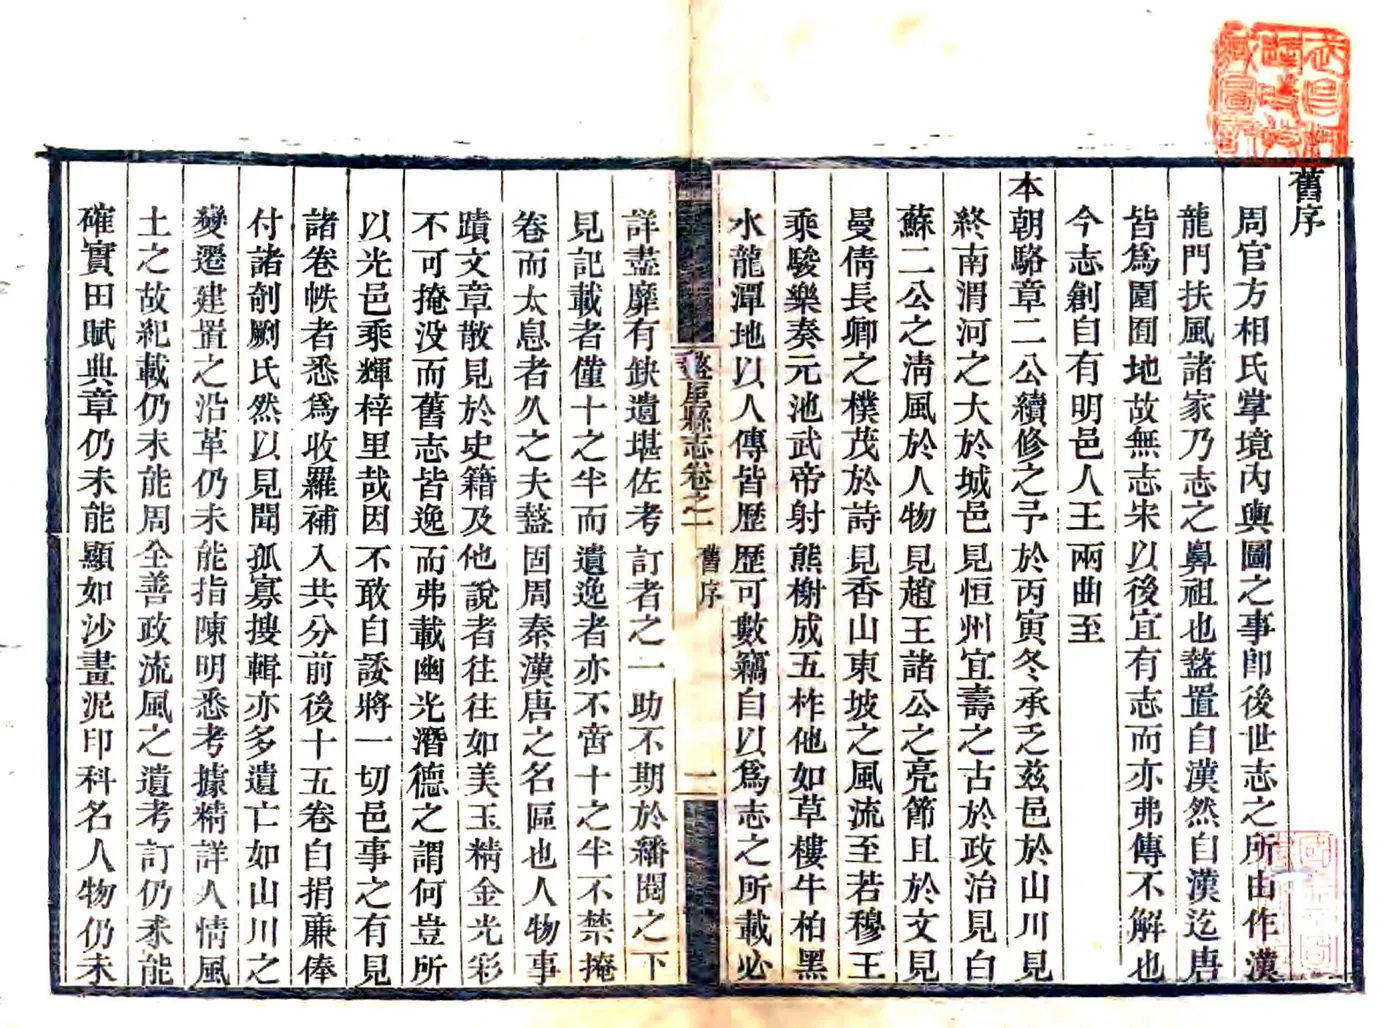 舊序
周官方相氏掌境內輿圖之事卽後世志之所由作漢
龍門扶風諸家乃志之鼻祖也盩置自漢然自漢迄唐
皆爲園囿地故無志宋以後宜有志而亦弗傳不解也
今志創自有明邑人王兩曲至
本朝駱章二公續修之予於丙寅冬承乏茲邑於山川見
終南渭河之大於城邑見恒州宜壽之古於政治見白
蘇二公之淸風於人物見趙王諸公之亮節且於文見
曼倩長卿之樸茂於詩見香山東坡之風流至若穆王
乘駿樂奏元池武帝射熊榭成五柞他如草樓牛柏黑
水龍潭地以人傳皆歷歷可數竊自以爲志之所載必
盩厔縣志卷之一 舊序 一
詳盡靡有缺遺堪佐考訂者之一助不期於繙閱之下
見記載者僅十之半而遺逸者亦不啻十之半不禁掩
卷而太息者久之夫盩固周秦漢唐之名區也人物事
蹟文章散見於史籍及他說者往往如美玉精金光彩
不可掩没而舊志皆逸而弗載幽光潛德之謂何豈所
以光邑乘輝梓里哉因不敢自諉將一切邑事之有見
諸卷帙者悉爲收羅補入共分前後十五卷自捐廉俸
付諸剞劂氏然以見聞孤寡搜輯亦多遺亡如山川之
變遷建置之沿革仍未能指陳明悉考據精詳人情風
土之故紀載仍未能周全善政流風之遺考訂仍未能
確實田賦典章仍未能顯如沙畫泥印科名人物仍未